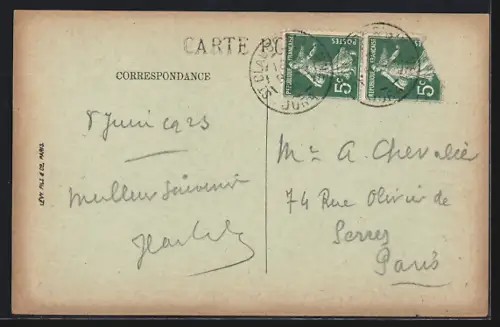 CARTE PO
CORRESPONDANCE
REPUBLIQUE FRANÇAISE
POSTES
5c
REPUBLIQUE FRANÇAISE
5c
ST CLAUDE
JURA
8 Juin 1923
Meilleur Souvenir
LEVY FILS & CIE, PARIS.
Mr A. Chevalier
74 Rue Olivier de
Serres
Paris